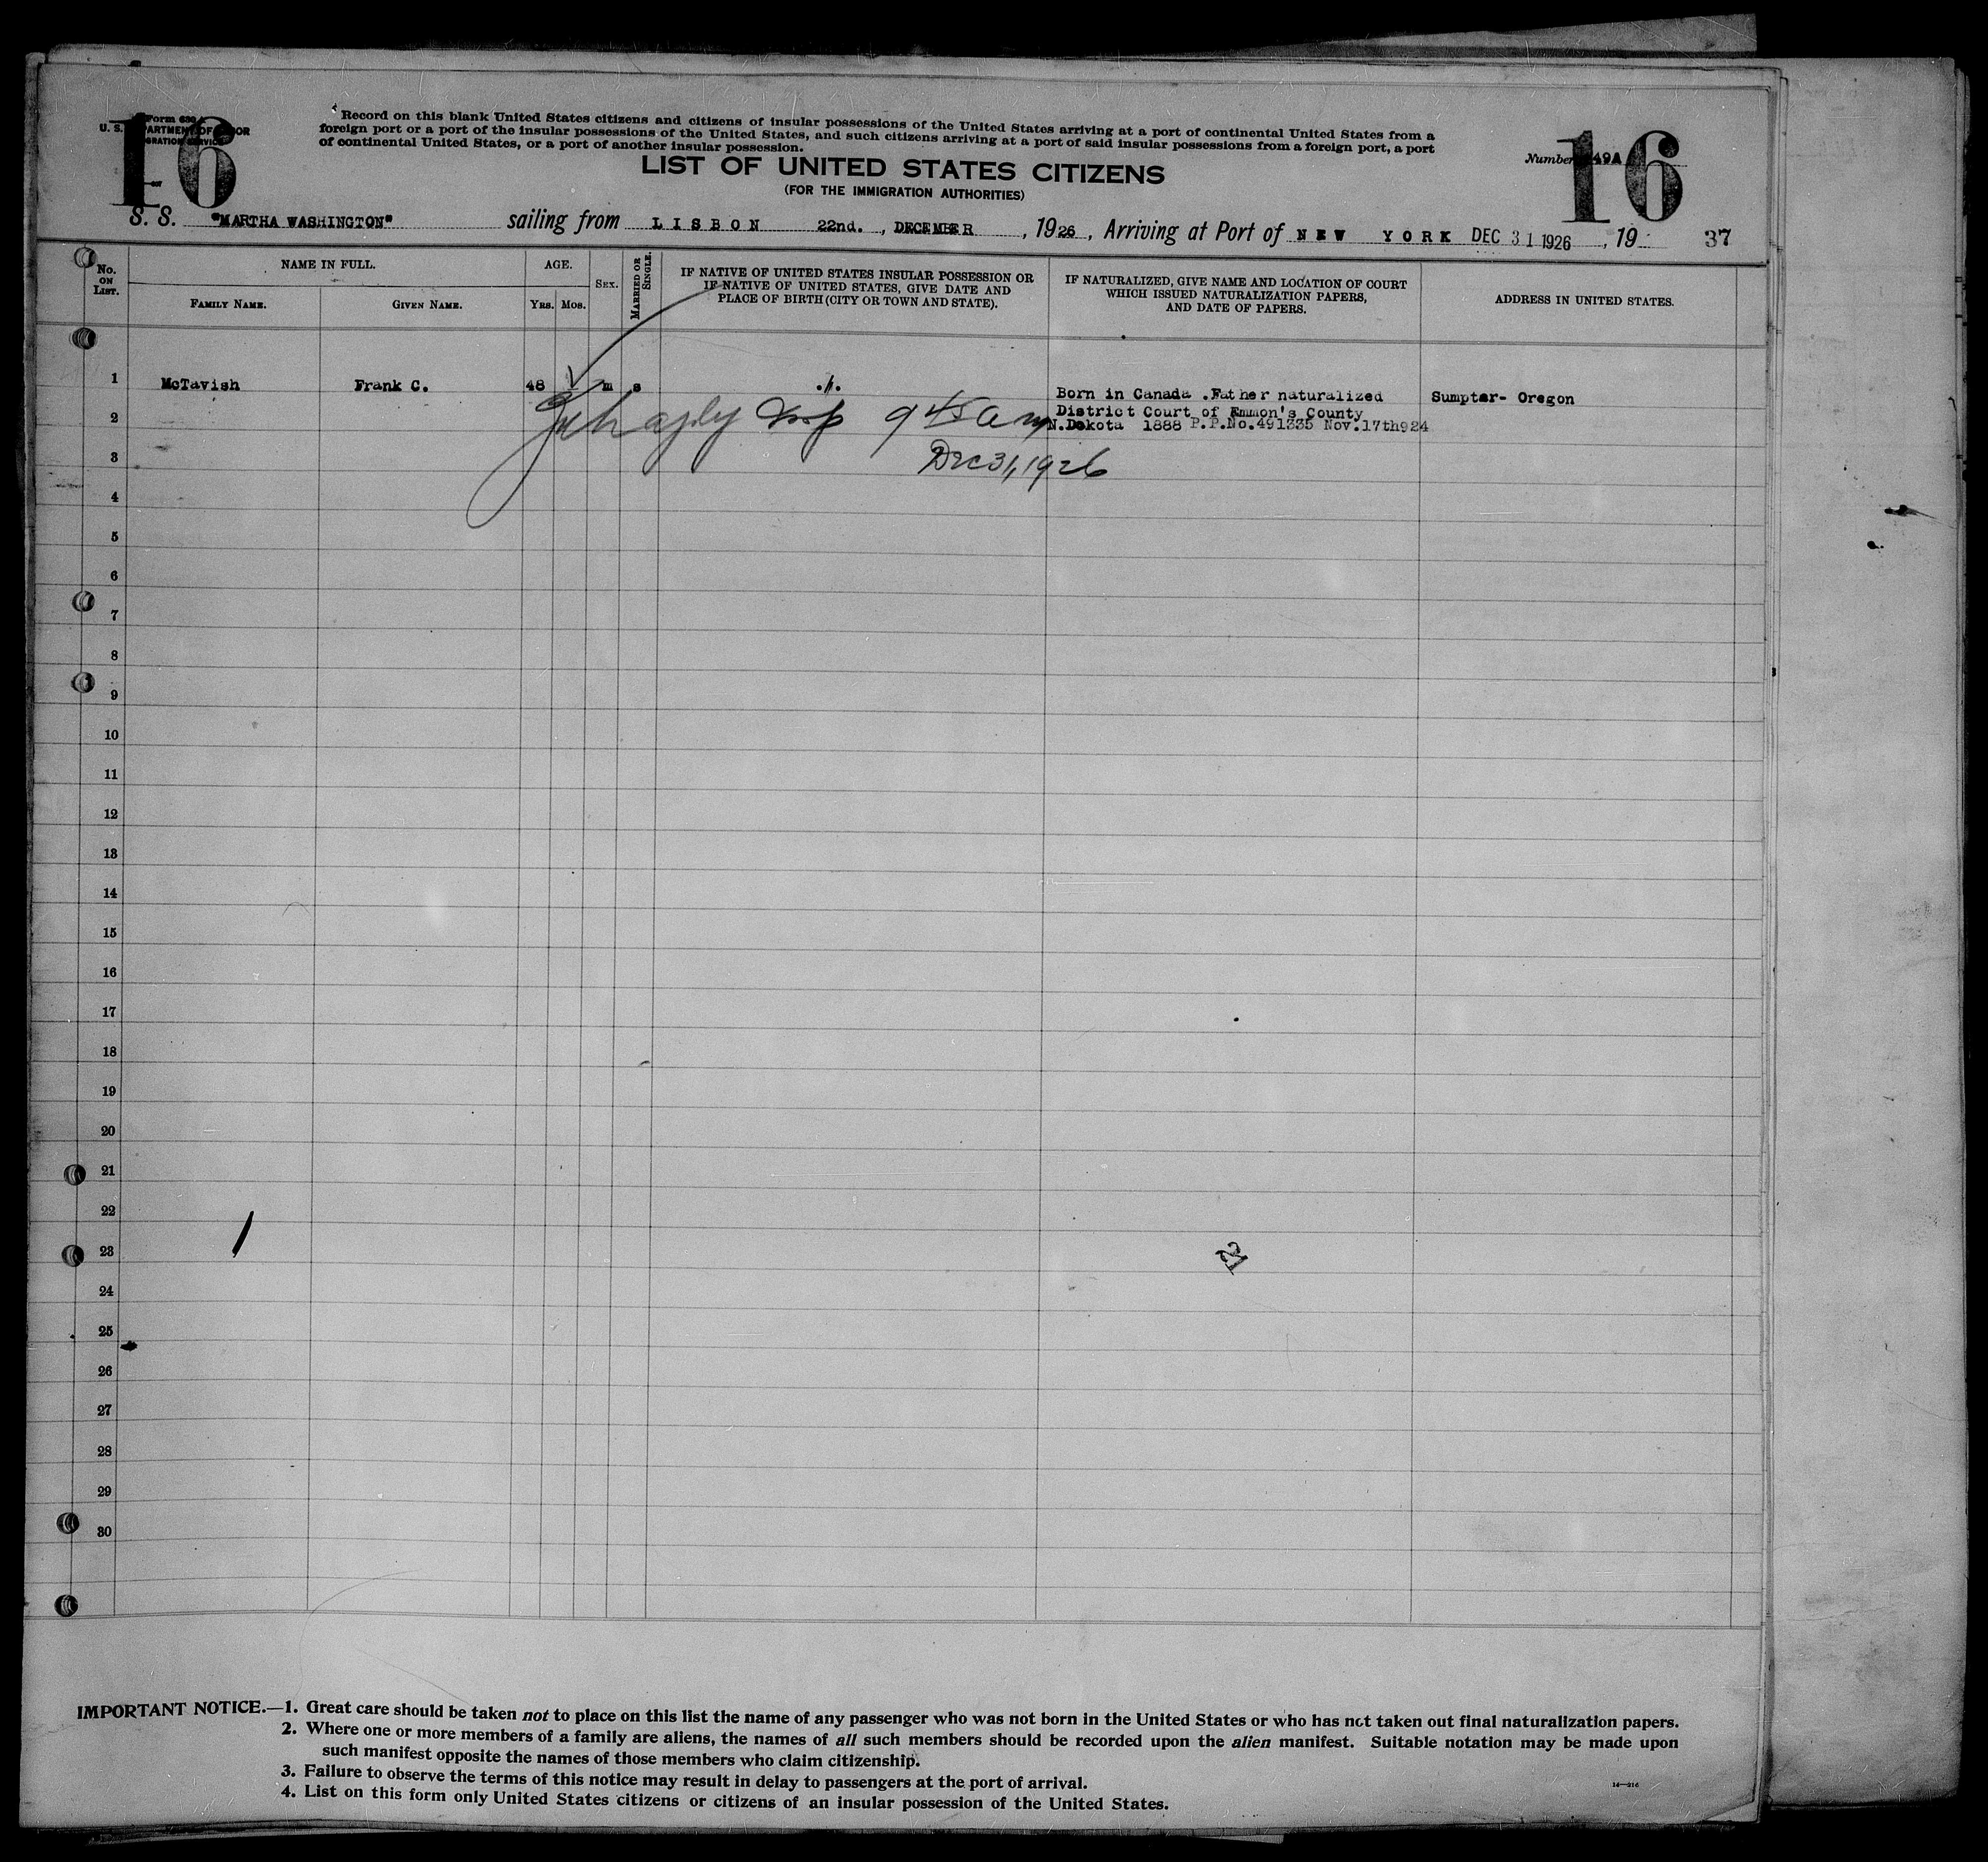 16
Form 630
U. S. DEPARTMENT OF LABOR
IMMIGRATION SERVICE
Record on this blank United States citizens and citizens of insular possessions of the United States arriving at a port of continental United States from a
foreign port or a port of the insular possessions of the United States, and such citizens arriving at a port of said insular possessions from a foreign port, a port
of continental United States, or a port of another insular possession.
16
Number 49A
LIST OF UNITED STATES CITIZENS
(FOR THE IMMIGRATION AUTHORITIES)
S. S. "MARTHA WASHINGTON" sailing from LISBON 22nd., DECEMBER, 1926, Arriving at Port of NEW YORK DEC 31 1926, 19 37
No. ON LIST.
NAME IN FULL.
FAMILY NAME.
GIVEN NAME.
AGE.
YRS.
MOS.
SEX.
MARRIED OR SINGLE.
IF NATIVE OF UNITED STATES INSULAR POSSESSION OR
IF NATIVE OF UNITED STATES, GIVE DATE AND
PLACE OF BIRTH (CITY OR TOWN AND STATE).
IF NATURALIZED, GIVE NAME AND LOCATION OF COURT
WHICH ISSUED NATURALIZATION PAPERS,
AND DATE OF PAPERS.
ADDRESS IN UNITED STATES.
1 McTavish Frank C. 48 m s ./. Born in Canada .Father naturalized Sumpter- Oregon
District Court of Emmon's County
2 9 45 am N.Dakota 1888 P.P.No.491335 Nov.17th924
3 Dec 31, 1926
4
5
6
7
8
9
10
11
12
13
14
15
16
17
18
19
20
21
22
23 21
24
25
26
27
28
29
30
IMPORTANT NOTICE.—1. Great care should be taken not to place on this list the name of any passenger who was not born in the United States or who has not taken out final naturalization papers.
2. Where one or more members of a family are aliens, the names of all such members should be recorded upon the alien manifest. Suitable notation may be made upon
such manifest opposite the names of those members who claim citizenship.
3. Failure to observe the terms of this notice may result in delay to passengers at the port of arrival.
4. List on this form only United States citizens or citizens of an insular possession of the United States.
14—216